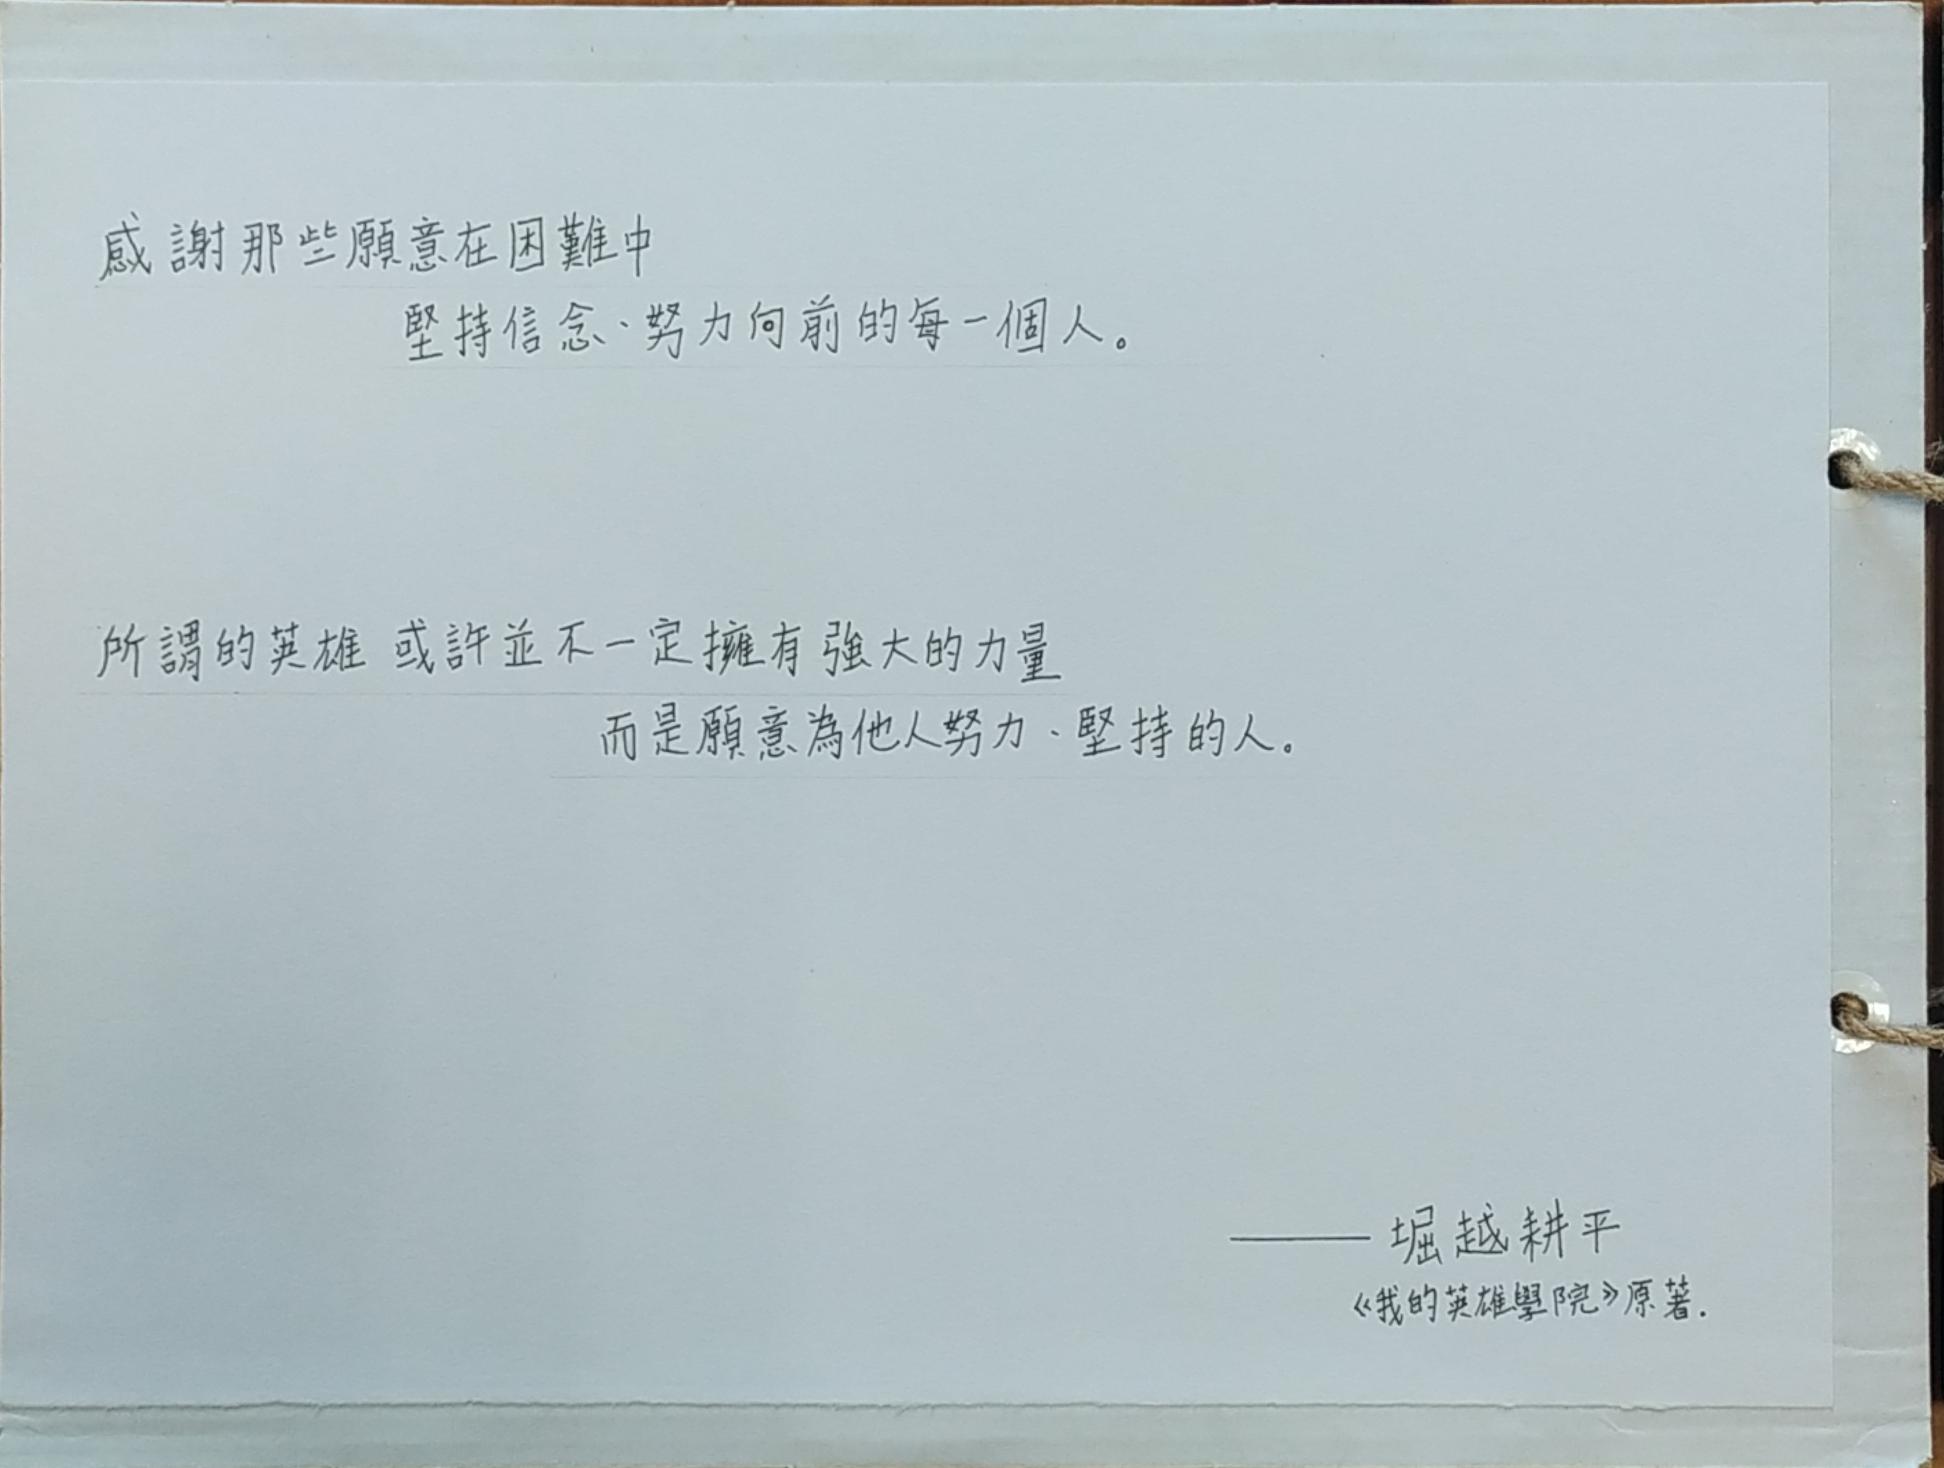 感謝那些願意在困難中
堅持信念、努力向前的每一個人。
所謂的英雄 或許並不一定擁有強大的力量
而是願意為他人努力、堅持的人。
——堀越耕平
《我的英雄學院》原著.